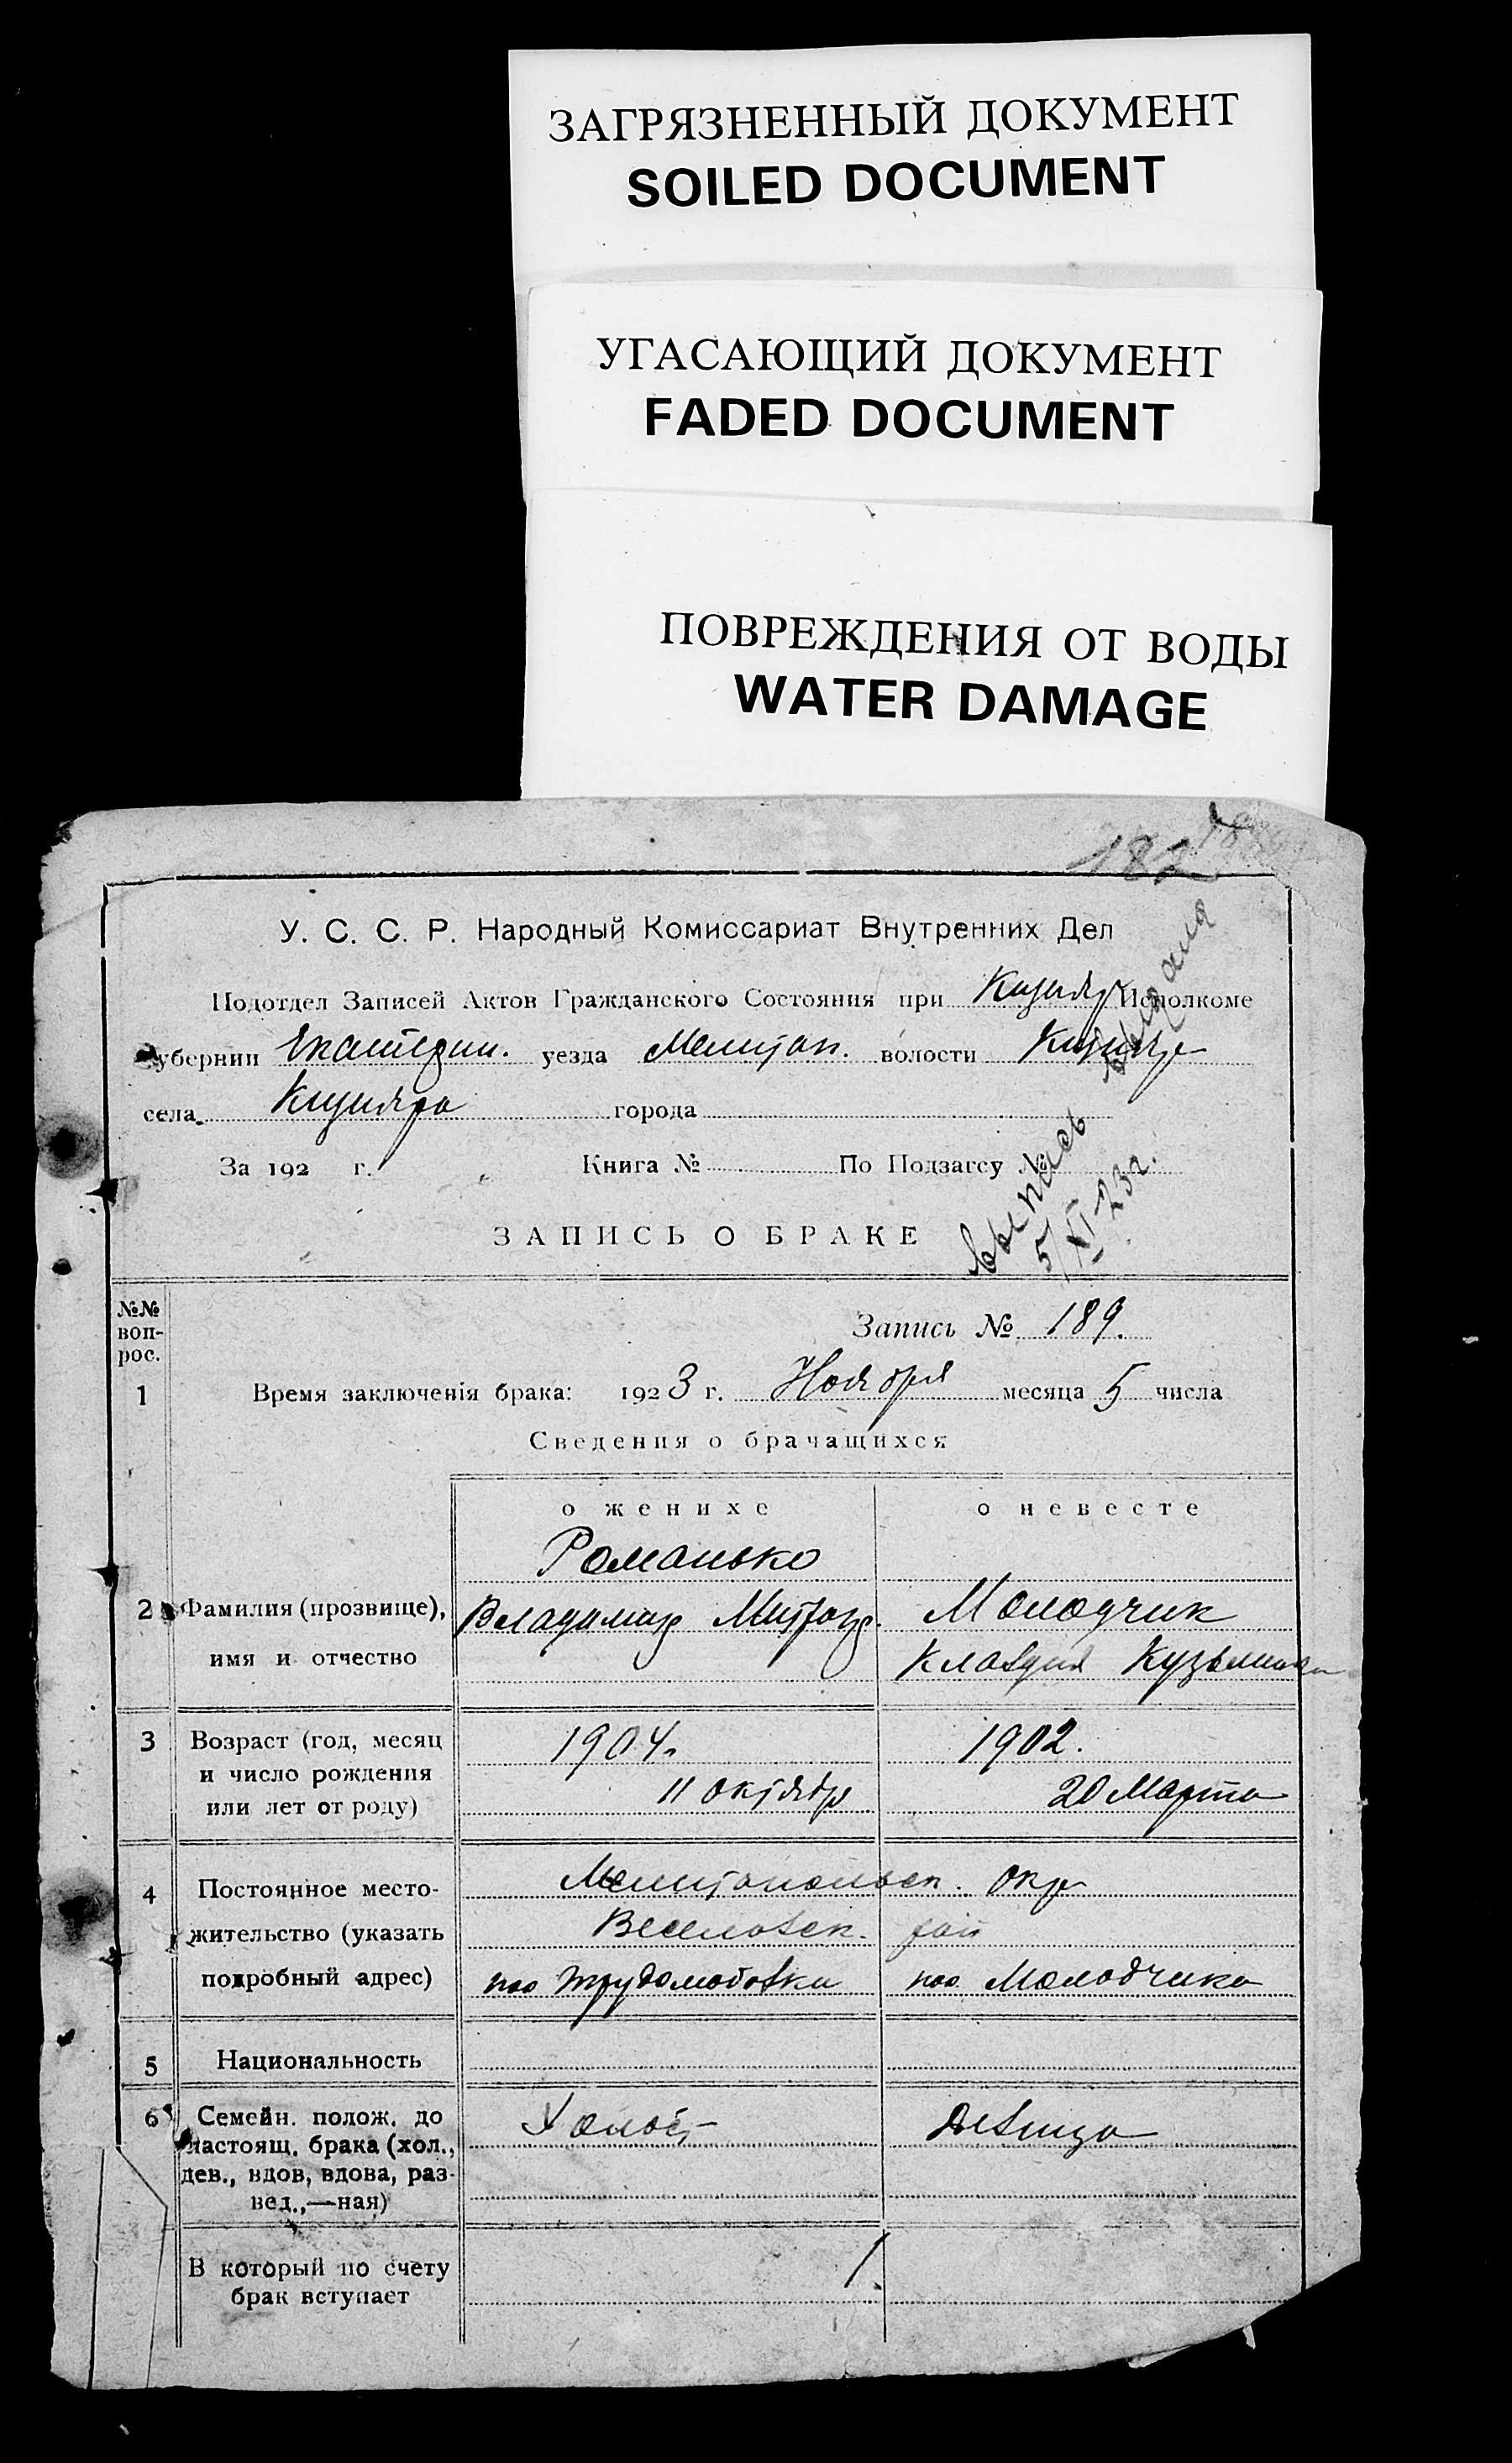 ЗАГРЯЗНЕННЫЙ ДОКУМЕНТ
SOILED DOCUMENT
УГАСАЮЩИЙ ДОКУМЕНТ
FADED DOCUMENT
ПОВРЕЖДЕНИЯ ОТ ВОДЫ
WATER DAMAGE
182
У. С. С. Р. Народный Комиссариат Внутренних Дел
Подотдел Записей Актов Гражданского Состояния при Кизияр Исполкоме
губернии Екатерин. уезда Мелитоп. волости Кизияр
села Кизияра города
За 192 г. Книга № По Подзагсу №
выпись выдана
5/XI-23г.
ЗАПИСЬ О БРАКЕ
№№ воп- рос.
Запись № 189.
1 Время заключенія брака: 1923 г. Ноября месяца 5 числа
Сведения о брачащихся
о женихе о невесте
Романько
2 Фамилия (прозвище), Владимир Митроф. Молодчик
имя и отчество Клавдия Кузьминов
3 Возраст (год, месяц 1904. 1902.
и число рождения 11 октябр 20 Марта
или лет от роду)
4 Постоянное место- Мелитопольск. окр
жительство (указать Веселовск. рай
подробный адрес) пос Трудолюбовки пос. Молодчика
5 Национальность
6 Семейн. полож. до Холост девица
настоящ. брака (хол.,
дев., вдов, вдова, раз-
вед.,—ная)
В который по счету 1.
брак вступает